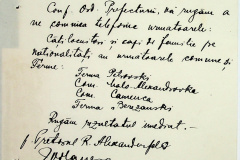 Conf. Ord. Prefecturii, vă rugăm a
ne comunica telefonic următoarele:
Câți locuitori și capi de familie pe
naționalități au următoarele comune și
Ferme:
Ferma Petrovski
Com. Malo Alexandrovka
Com. Camenca
Ferma Berzanski
Rugăm rezultatul imediat.-
Pretorul R. Alexanderfeld